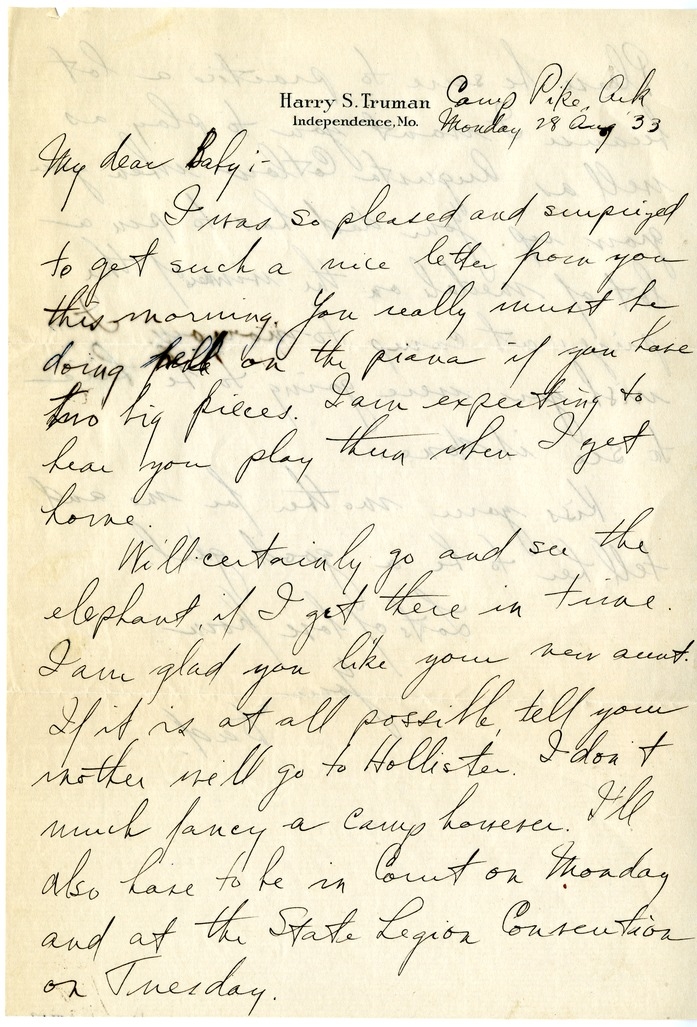 Harry S. Truman
Independence, Mo.
Camp Pike, Ark
Monday 28 Aug '33
My dear Baby:-
I was so pleased and surprized
to get such a nice letter from you
this morning. You really must be
doing well on the piana if you have
two big pieces. I am expecting to
hear you play them when I get
home.
Will certainly go and see the
elephant, if I get there in time.
I am glad you like your new aunt.
If it is at all possible, tell your
mother we'll go to Hollister. I don't
much fancy a camp however. I'll
also have to be in Court on Monday
and at the State Legion Convention
on Tuesday.